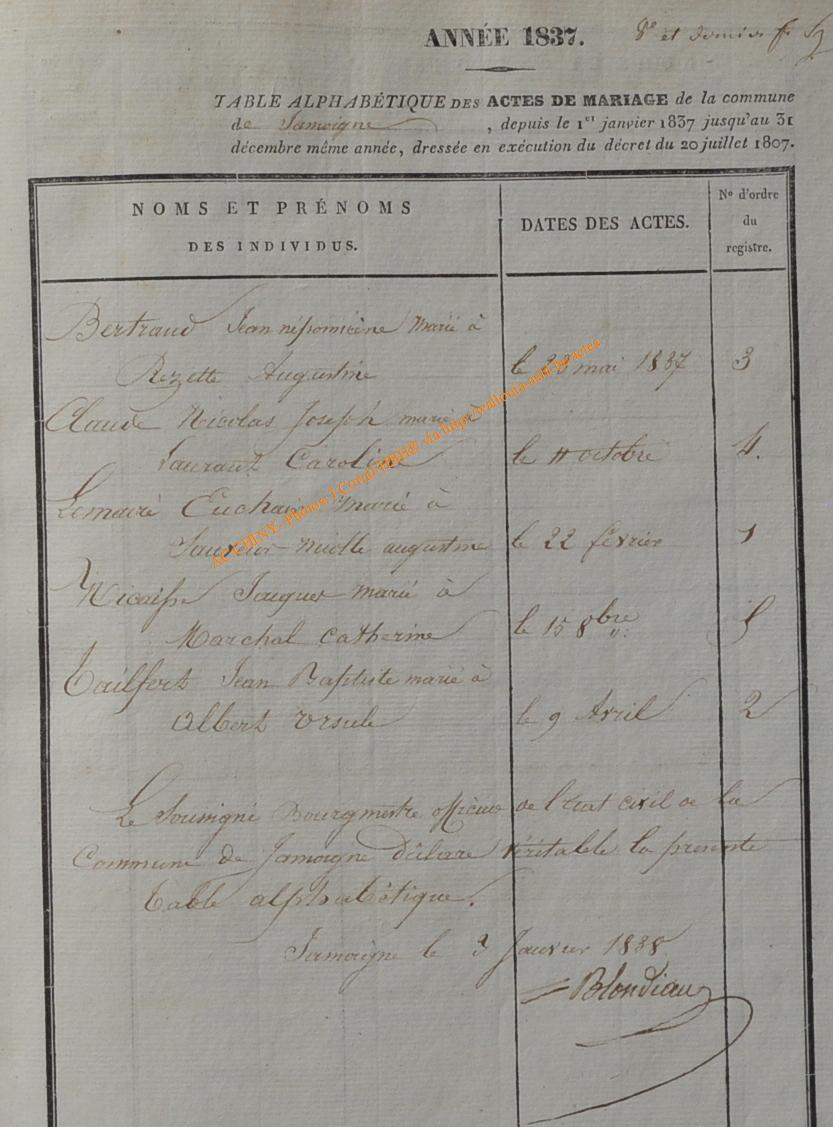 ANNÉE 1837.
8e et dernier f.
TABLE ALPHABÉTIQUE DES ACTES DE MARIAGE de la commune
de Jamoigne, depuis le 1er janvier 1837 jusqu'au 31
décembre même année, dressée en exécution du décret du 20 juillet 1807.
NOMS ET PRÉNOMS
DES INDIVIDUS.
DATES DES ACTES.
No d'ordre
du
registre.
Bertrand Jean népomicène Marié à
Rezette Augustine le 23 mai 1837 3
Claude Nicolas Joseph marié à
Laurant Caroline le 11 octobre 4.
Lemaire Euchaire Marié à
augustine le 22 février 1
Nicaisse Jacques Marié à
Marchal Catherine le 15 8bre 5
Tailfert Jean Baptiste marié à
Albert Ursule le 9 Avril 2
Le Soussigné Bourgmestre officier de l'état civil de la
Commune de Jamoigne déclare véritable la presente
table alphabétique.
Jamoigne le 3 Janvier 1838
Blondiau
AC CHINY - Photos J.Cornerotte via https://wallonia-asbl.be/actes